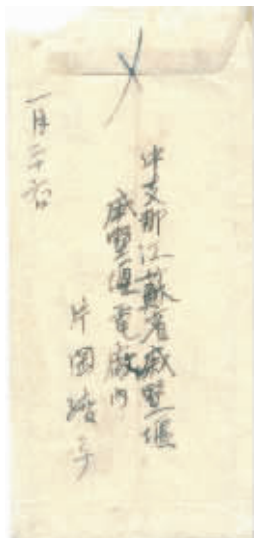 中支那江蘇省戚墅堰
戚墅堰電廠内
片岡
一月二十